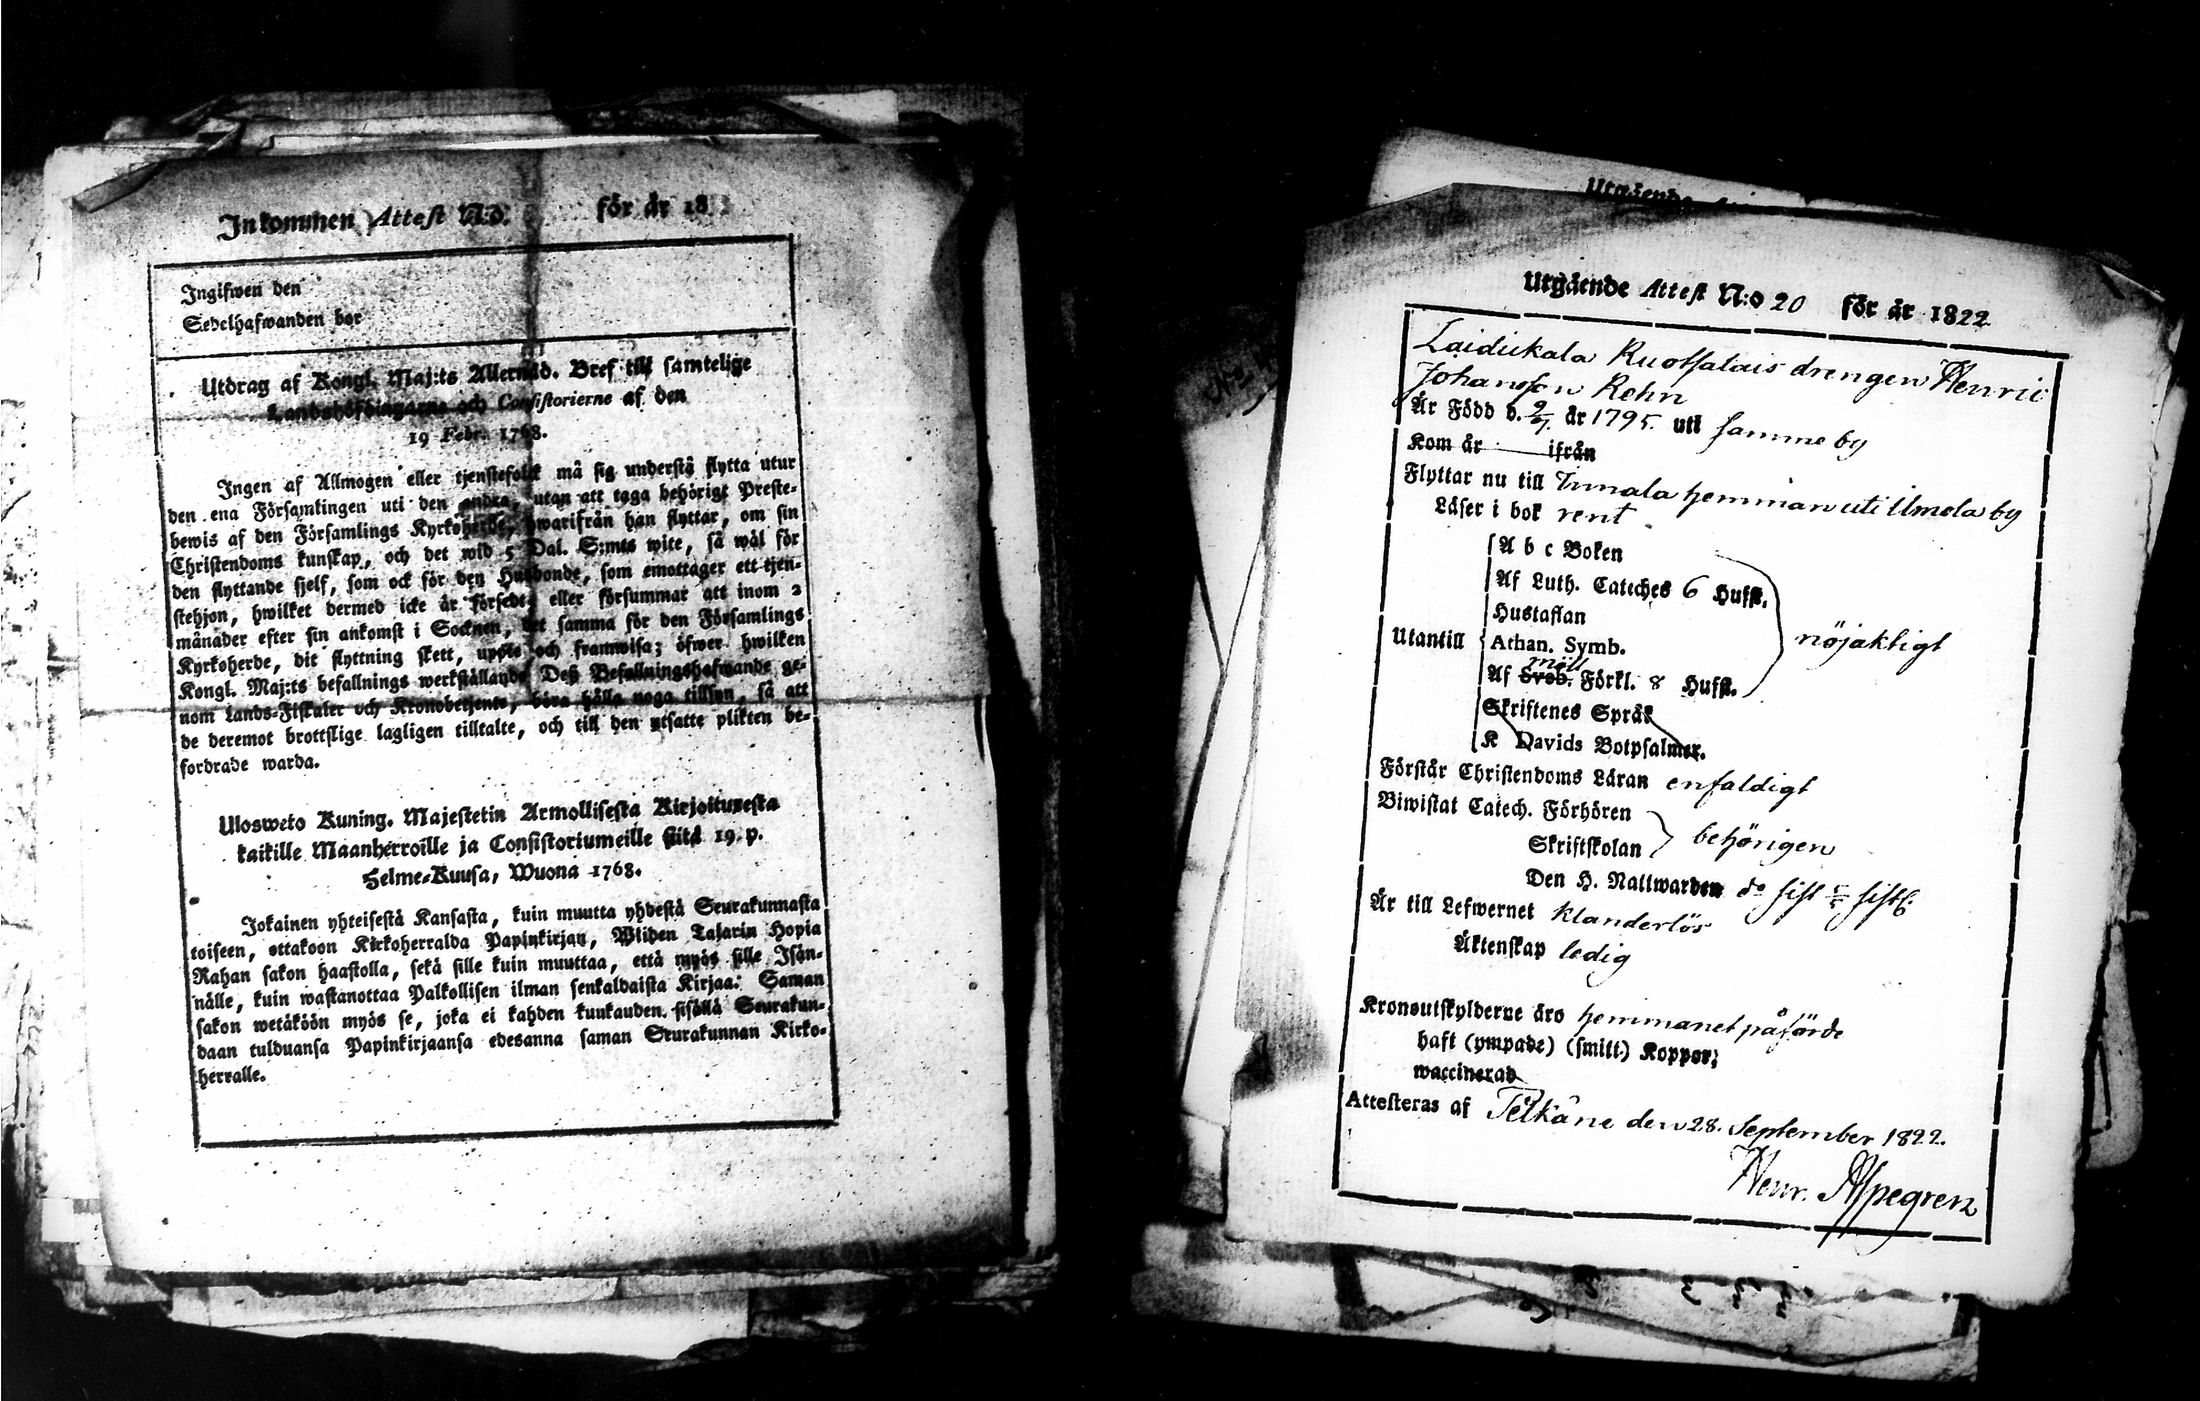 Inkommen Attest N:o för år 18
Ingifwen den
Sedelhafwanden bor
Utdrag af Kongl. Maj:ts Allernåd. Bref till samtelige
Landshöfdingarne och Consistorierne af den
19 Febr. 1768.
Ingen af Allmogen eller tjenstefolket må sig understå flytta utur
den ena Församlingen uti den andra, utan att taga behörigt Preste-
bewis af den Församlings Kyrkoherde, hwarifrån han flyttar, om sin
Christendoms kunskap, och det wid 5 Dal. S:mts wite, så wäl för
den flyttande sjelf, som ock för den Husbonde, som emottager ett tjen-
stehjon, hwilket dermed icke är försedt, eller försummar att inom 2
månader efter sin ankomst i Socknen, det samma för den Församlings
Kyrkoherde, dit flyttning skett, uppte och framwisa; öfwer hwilken
Kongl. Maj:ts befallnings werkställande Deß Befallningshafwande ge-
nom Lands-Fiskaler och Kronobetjente, böra hålla noga tillsyn, så att
de deremot brottslige lagligen tilltalte, och till den utsatte plikten be-
fordrade warda.
Ulosweto Kuning. Majestetin Armollisesta Kirjoituxesta
kaikille Maanherroille ja Consistoriumeille siitä 19. p.
Helme-Kuusa, Wuona 1768.
Jokainen yhteisestä Kansasta, kuin muutta yhdestä Seurakunnasta
toiseen, ottakoon Kirkoherralda Papinkirjan, Wiiden Talarin Hopia
Rahan sakon haastolla, sekä sille kuin muuttaa, että myös sille Isän-
nälle, kuin wastanottaa Palkollisen ilman senkaldaista Kirjaa: Saman
sakon wetäköön myös se, joka ei kahden kuukauden sisällä Seurakun-
daan tulduansa Papinkirjaansa edesanna saman Seurakunnan Kirko-
herralle.
Utgående
Utgående Attest N:o 20 för år 1822
Laidikala Ruokalais drengen Henric
Johansson Rehn
Är Född d. 2/7 år 1795. uti samme by
Kom år ifrån
Flyttar nu till Timala hemman uti Ilmola by
Läser i bok rent
A b c Boken
Af Luth. Cateches 6 Hufst.
Hustaflan
Utantill Athan. Symb. nöjaktigt
möll
Af Sveb. Förkl. 8 Hufst.
Skriftenes Språk
K Davids Botpsalmer.
Förstår Christendoms Läran enfaldigt
Biwistat Catech. Förhören
Skriftskolan behörigen
Den H. Nattwarden do sist
Är till Lefwernet klanderlös
Äktenskap ledig
Kronoutskylderne äro hemmanet påförde
haft (ympade) (smitt.) Koppor;
waccinerad
Attesteras af Pelkäne den 28. September 1822.
Henr. Aspegren